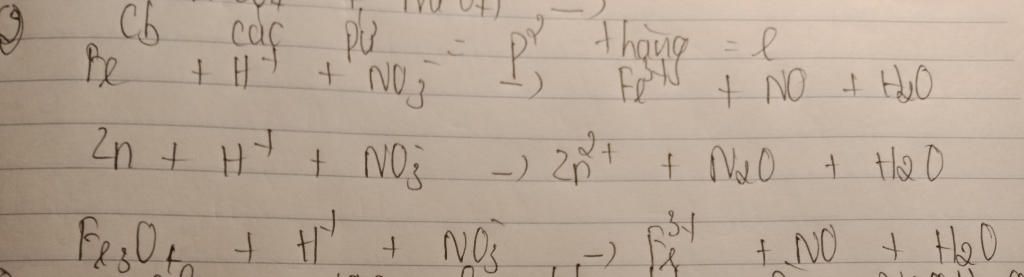 Cb các pư = p² thăng = e
Fe + H⁺ + NO₃⁻ → Fe³⁺ + NO + H₂O
Zn + H⁺ + NO₃⁻ → Zn²⁺ + N₂O + H₂O
Fe₃O₄ + H⁺ + NO₃⁻ → Fe³⁺ + NO + H₂O